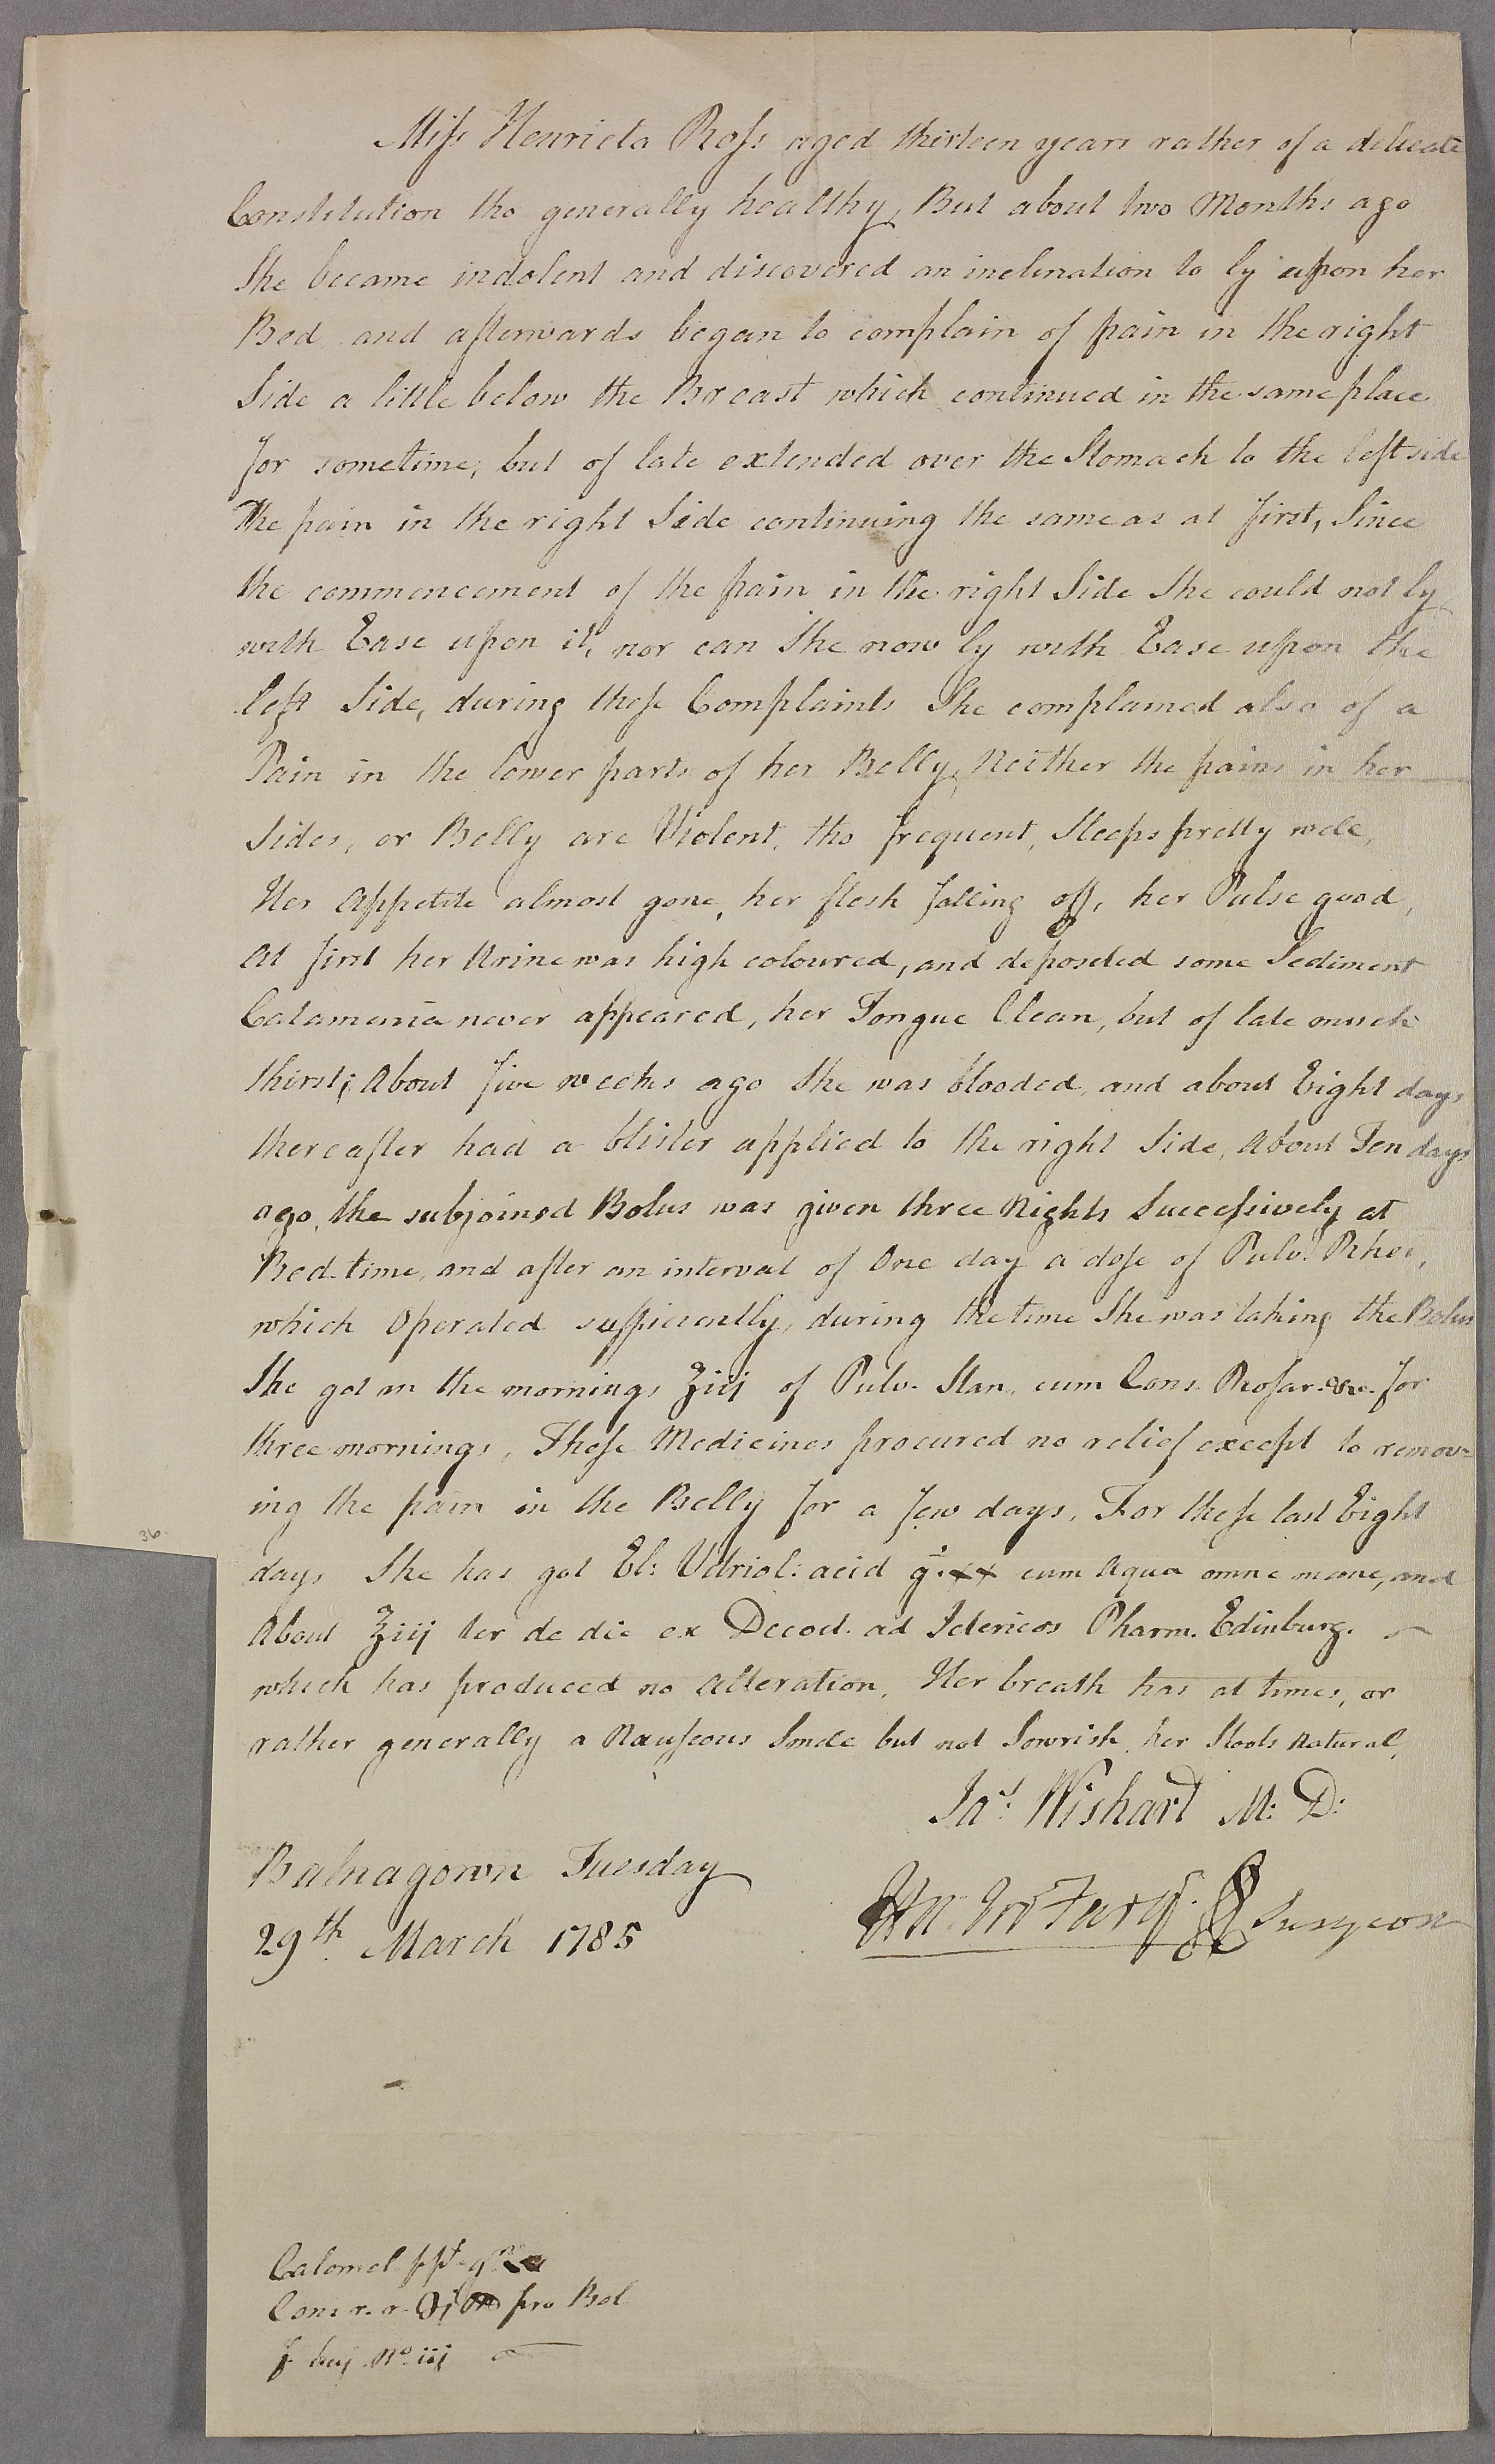 Miss Henrieta Ross aged thirteen years rather of a delicate
Constitution tho generally healthy, But about two Months ago
She became indolent and discovered an inclination to ly upon her
Bed and afterwards began to complain of pain in the right
Side a little below the Breast which continued in the same place
for sometime, but of late extended over the Stomach to the left side
The pain in the right Side continuing the same as at first, Since
the commencement of the pain in the right Side She could not ly
with Ease upon it, nor can She now ly with Ease upon the
left Side, during these Complaints She complained also of a
Pain in the lower parts of her Belly, Neither the pains in her
Sides, or Belly are Violent, tho frequent, Sleeps pretty well,
Her Appetite almost gone, her flesh falling off, her Pulse good,
At first her Urine was high coloured, and deposeted some Sediment
Catamenia never appeared, her Tongue Clean, but of late much
thirst; About five weeks ago She was blooded, and about Eight days
thereafter had a blister applied to the right Side, About Ten days
ago, the subjoined Bolus was given three Nights Successively at
Bed-time, and after an interval of One day a dose of Pulv. Rhei,
which Operated sufficiently, during the time She was taking the Bolus
She got in the mornings ʒiij of Pulv. Stan. cum Cons. Rosar. for
three mornings, These Medicines procured no relief except to remov=
ing the pain in the Belly for a few days. For these last Eight
days She has got El: Vitriol: acid gt. xx cum Aqua omne mane, and
About ʒiij ter de die ex Decoct. ad Ictericos Pharm. Edinburg.
which has produced no Alteration, Her breath has at times, or
rather generally a Nauseous Smele but not Sowrish, her Stools Natural,
Jas: Wishart M: D:
Balnagown Tuesday
Surgeon
29th March 1785
Calomel ppt. gr.
Cons r. r. ℈j pro Bol
f huj No. iij